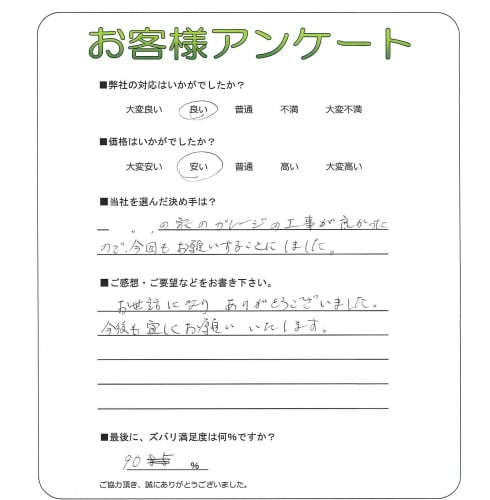 お客様アンケート
■弊社の対応はいかがでしたか？
大変良い 良い 普通 不満 大変不満
■価格はいかがでしたか？
大変安い 安い 普通 高い 大変高い
■当社を選んだ決め手は？
の家のガレージの工事が良かった
ので、今回もお願いすることにしました。
■ご感想・ご要望などをお書き下さい。
お世話になり ありがとうございました。
今後も宜しくお願い いたします。
■最後に、ズバリ満足度は何%ですか？
90 %
ご協力頂き、誠にありがとうございました。